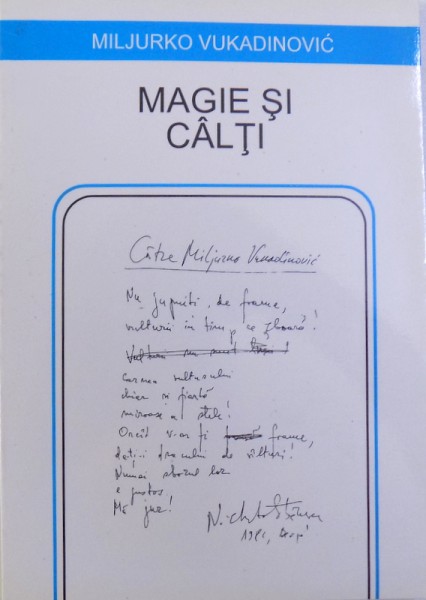 MILJURKO VUKADINOVIĆ
MAGIE ŞI
CÂLŢI
Către Miljurko Vukadinović
Nu jupuiți, de foame,
vulturii în timp ce zboară!
Vulturii nu sunt
carnea vulturului
chiar și fiartă
miroase a stele!
Oricît v-ar fi foame,
dați-i dracului de vulturi!
Numai zborul lor
e gustos
Mă jur!
Nichita Stănescu
1981,